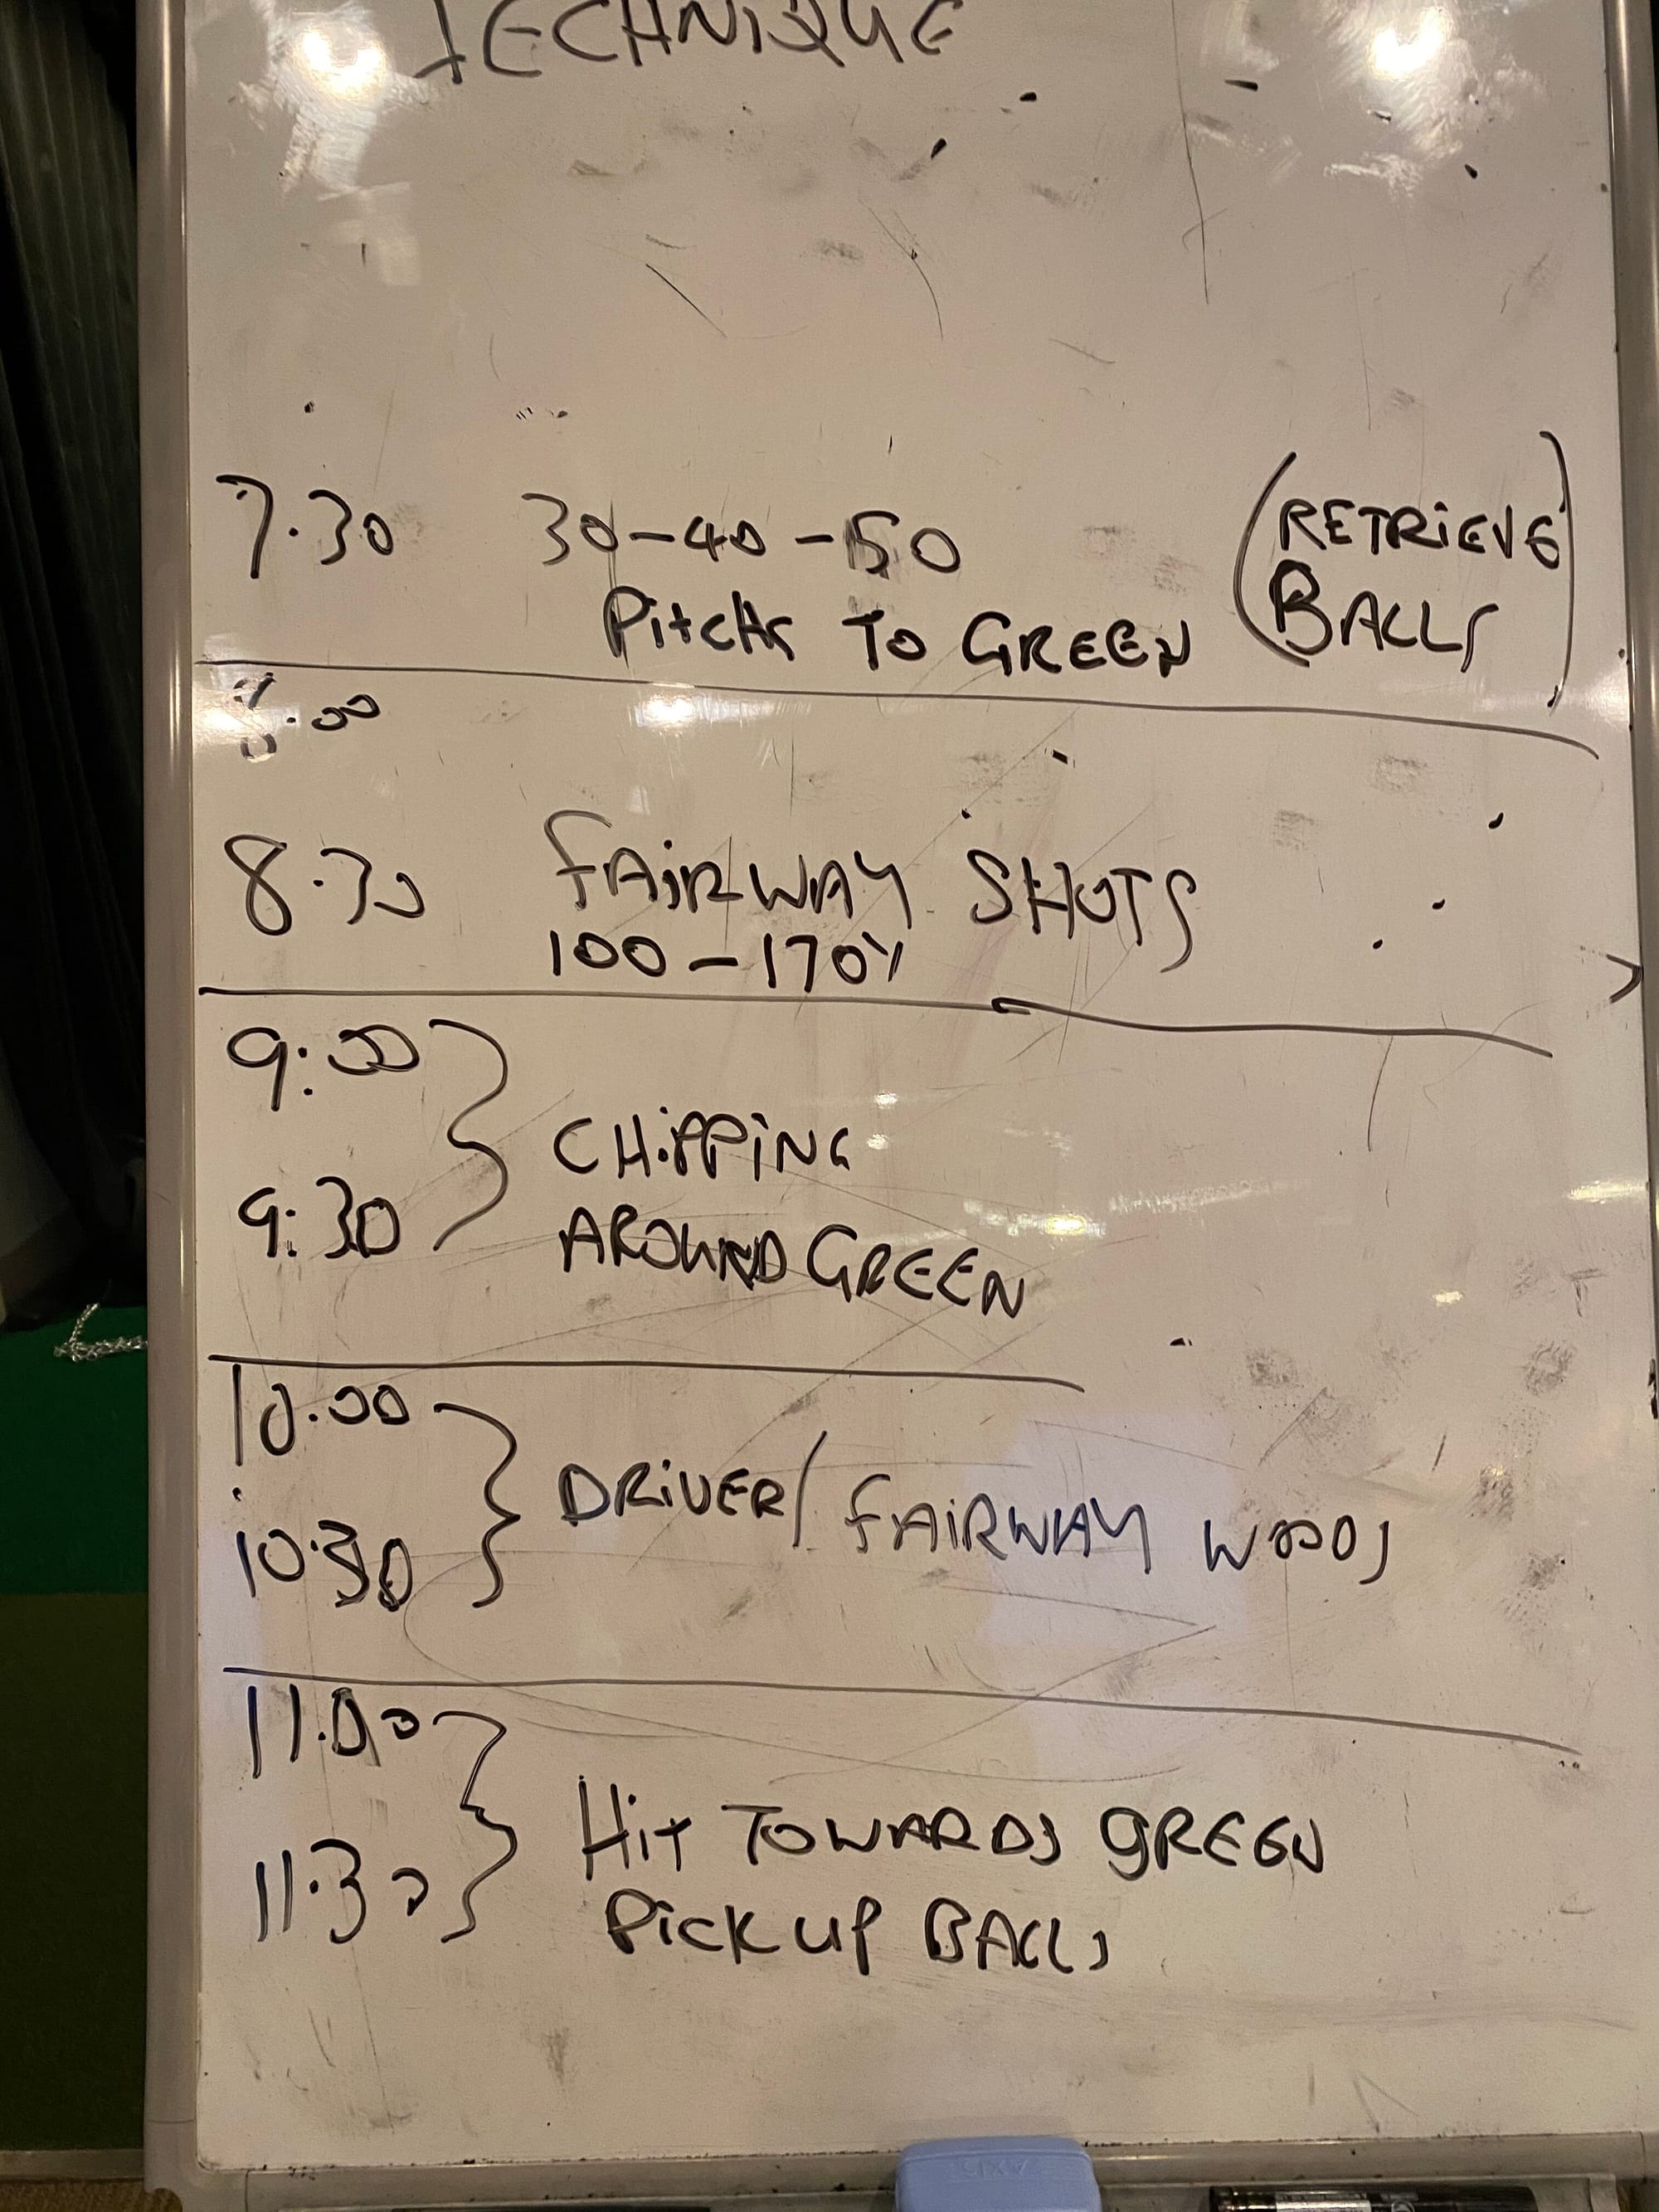 TECHNIQUE
7.30 30-40-50 (RETRIEVE
Pitchs To GREEN BALLS)
8.00
8.30 FAiRWAY SHOTS
100-170Y
9:00
CHiPPiNG
9:30
AROUND GREEN
10.00
DRiVER/ FAiRWAY WOODS
10:30
11.00
HiT TOWARDS GREEN
11.30
Pick up BALLS